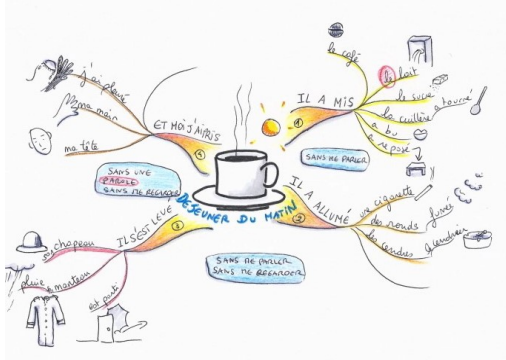 DEJEUNER DU MATIN
IL A MIS
1
le café
le lait
le sucre
la cuillère
a tourné
a bu
a reposé
SANS ME PARLER
IL A ALLUMÉ
2
une cigarette
des ronds
fumée
les cendres
SANS ME PARLER
SANS ME REGARDER
IL S'EST LEVÉ
3
chapeau
pluie
manteau
est parti
SANS UNE
PAROLE
SANS ME REGARDER
ET MOI J'AI PRIS
4
ma tête
ma main
j'ai pleuré